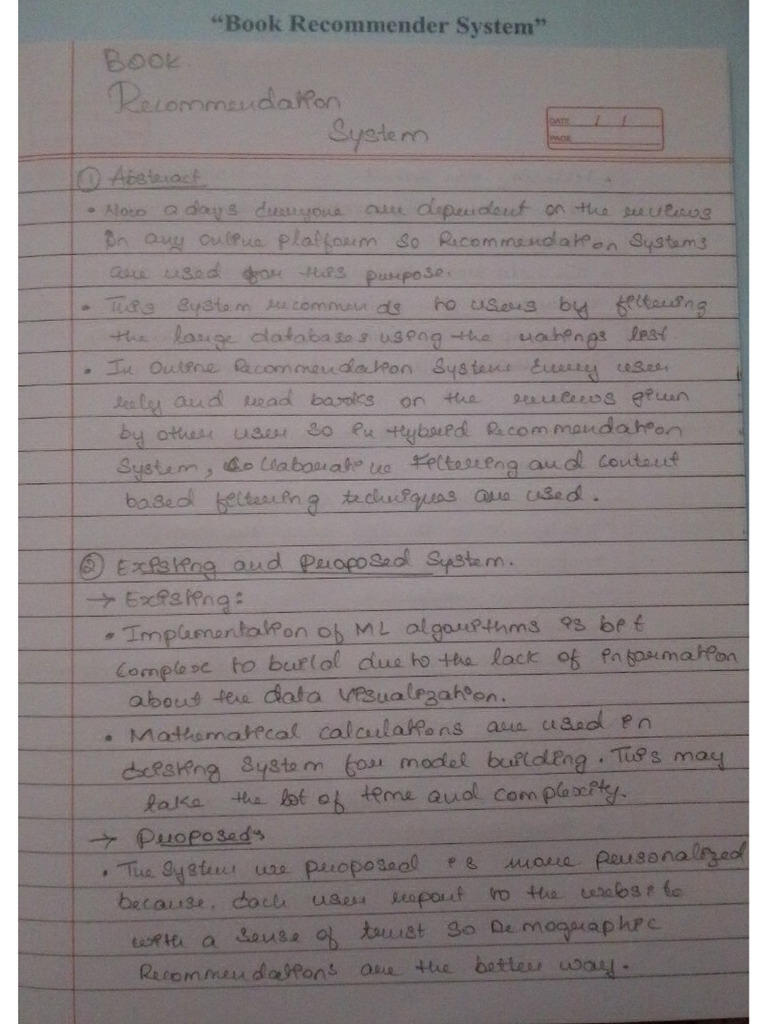 “Book Recommender System”
BOOK
Recommendation
System
DATE / /
PAGE
① Abstract
• Now a days Everyone are dependent on the reviews
in any online platform so Recommendation Systems
are used for this purpose.
• This system recommends to users by filtering
the large databases using the ratings list
• In Online Recommendation System Every user
rely and read books on the reviews given
by other user so in Hybrid Recommendation
System, Collaborative Filtering and content
based filtering techniques are used.
② Existing and Proposed System.
→ Existing:
• Implementation of ML algorithms is bit
complex to build due to the lack of information
about the data visualization.
• Mathematical calculations are used in
existing system for model building. This may
take the lot of time and complexity.
→ Proposed:
• The System we proposed is more personalized
because, Each user report to the website
with a sense of trust so Demographic
Recommendations are the better way.